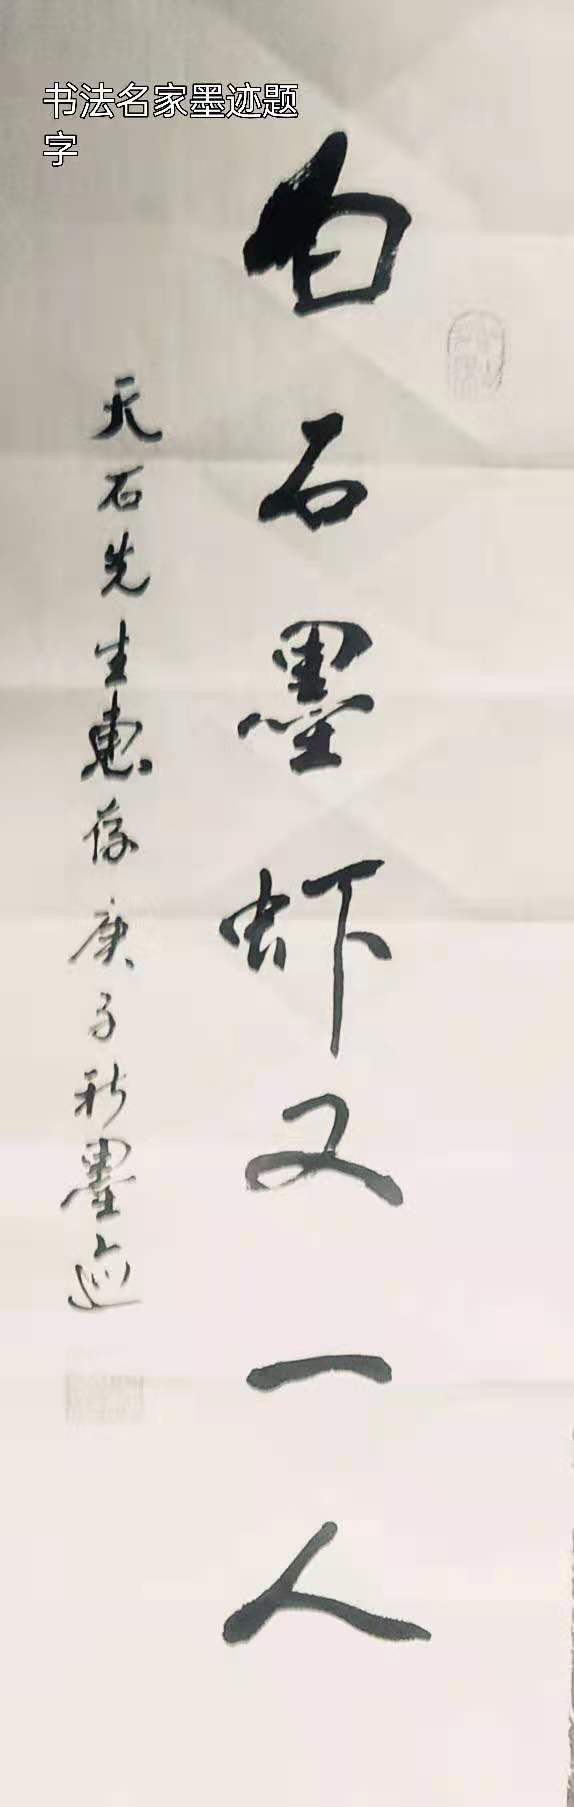 书法名家墨迹题
字
白石墨虾又一人
天石先生惠存庚子秋墨迹